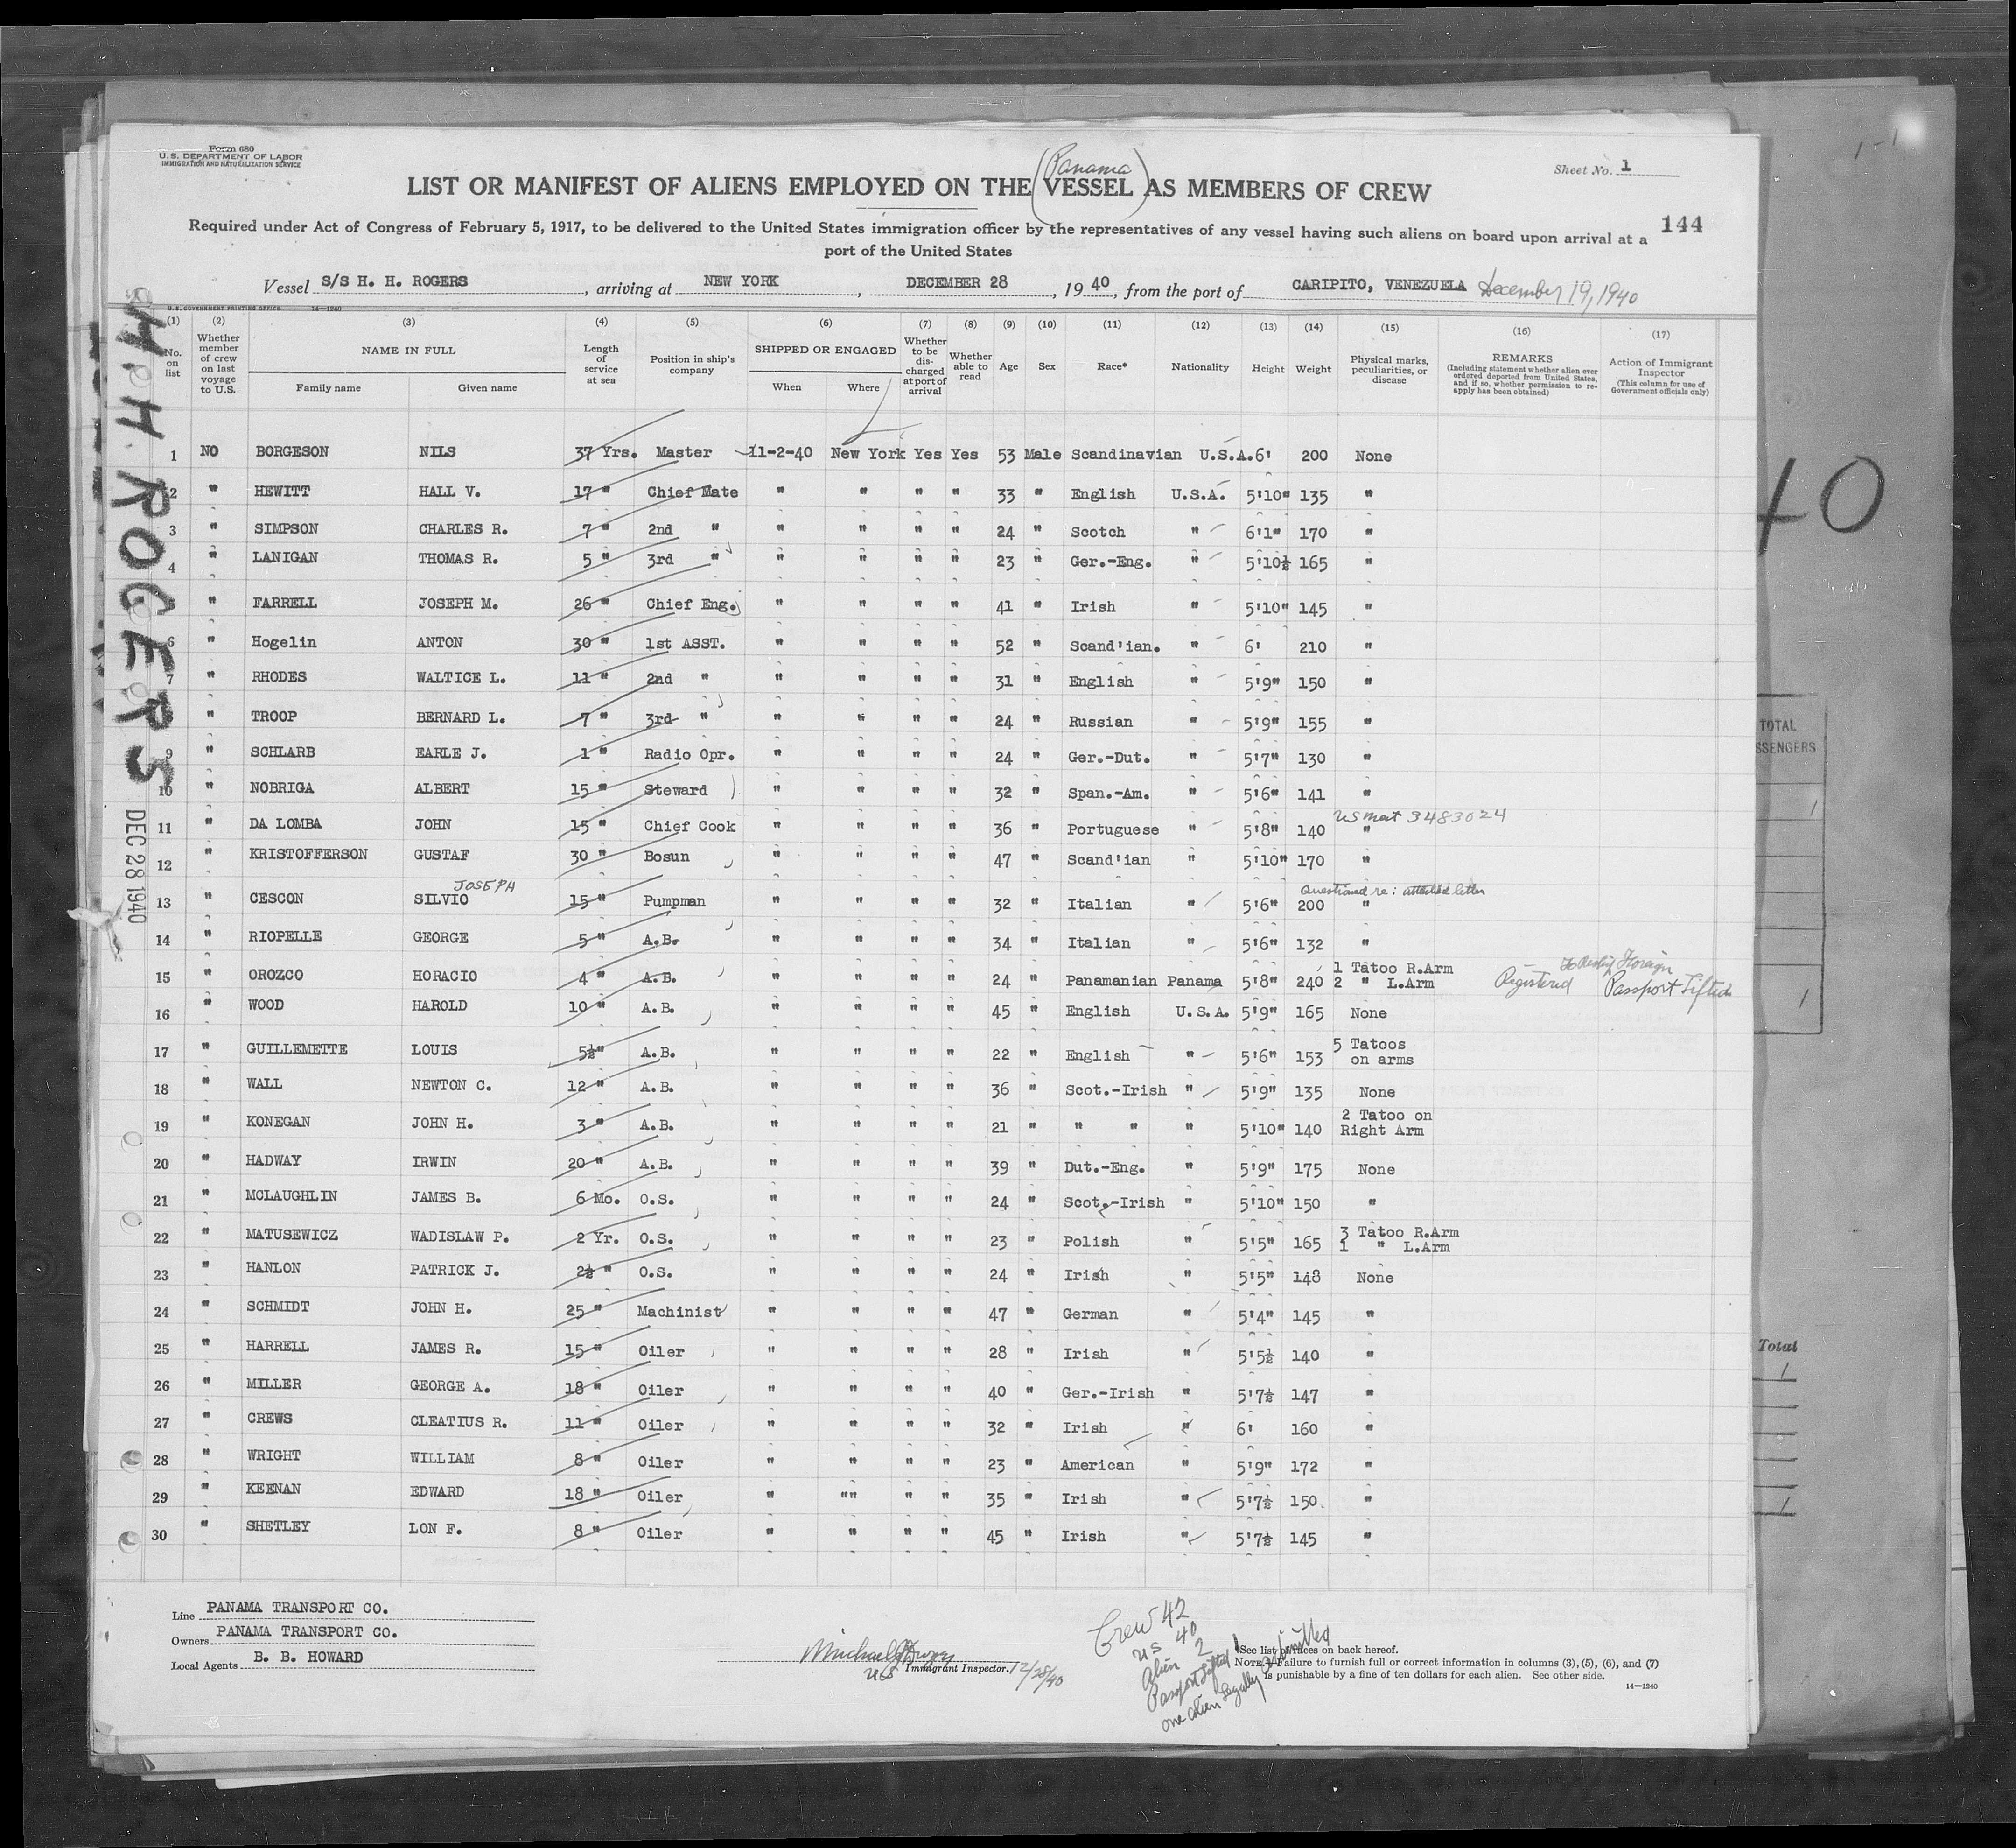 Form 680
U. S. DEPARTMENT OF LABOR
IMMIGRATION AND NATURALIZATION SERVICE
Sheet No. 1
(Panama)
LIST OR MANIFEST OF ALIENS EMPLOYED ON THE VESSEL AS MEMBERS OF CREW
144
Required under Act of Congress of February 5, 1917, to be delivered to the United States immigration officer by the representatives of any vessel having such aliens on board upon arrival at a
port of the United States
Vessel S/S H. H. ROGERS, arriving at NEW YORK, DECEMBER 28, 19 40, from the port of CARIPITO, VENEZUELA December 19, 1940
U. S. GOVERNMENT PRINTING OFFICE 14—1240
(1) (2) (3) (4) (5) (6) (7) (8) (9) (10) (11) (12) (13) (14) (15) (16) (17)
No. on list
Whether member of crew on last voyage to U.S.
NAME IN FULL
Family name
Given name
Length of service at sea
Position in ship's company
SHIPPED OR ENGAGED
When
Where
Whether to be discharged at port of arrival
Whether able to read
Age
Sex
Race*
Nationality
Height
Weight
Physical marks, peculiarities, or disease
REMARKS
(Including statement whether alien ever ordered deported from United States, and if so, whether permission to reapply has been obtained)
Action of Immigrant Inspector
(This column for use of Government officials only)
1 NO BORGESON NILS 37 Yrs. Master 11-2-40 New York Yes Yes 53 Male Scandinavian U.S.A. 6' 200 None
2 " HEWITT HALL V. 17 " Chief Mate " " " " 33 " English U.S.A. 5'10" 135 "
3 " SIMPSON CHARLES R. 7 " 2nd " " " " " 24 " Scotch " 6'1" 170 "
4 " LANIGAN THOMAS R. 5 " 3rd " " " " " 23 " Ger.-Eng. " 5'10½ 165 "
" FARRELL JOSEPH M. 26 " Chief Eng. " " " " 41 " Irish " 5'10" 145 "
6 " Hogelin ANTON 30 " 1st ASST. " " " " 52 " Scand'ian. " 6' 210 "
7 " RHODES WALTICE L. 11 " 2nd " " " " " 31 " English " 5'9" 150 "
" TROOP BERNARD L. 7 " 3rd " " " " " 24 " Russian " 5'9" 155 "
9 " SCHLARB EARLE J. 1 " Radio Opr. " " " " 24 " Ger.-Dut. " 5'7" 130 "
10 " NOBRIGA ALBERT 15 " Steward " " " " 32 " Span.-Am. " 5'6" 141 "
11 " DA LOMBA JOHN 15 " Chief Cook " " " " 36 " Portuguese " 5'8" 140 " US nat 3483024
12 " KRISTOFFERSON GUSTAF 30 " Bosun " " " " 47 " Scand'ian " 5'10" 170 "
13 " CESCON SILVIO JOSEPH 15 " Pumpman " " " " 32 " Italian " 5'6" 200 " Questioned re: attached letter
14 " RIOPELLE GEORGE 5 " A.B. " " " " 34 " Italian " 5'6" 132 "
15 " OROZCO HORACIO 4 " A.B. " " " " 24 " Panamanian Panama 5'8" 240 1 Tatoo R.Arm
2 " L.Arm Registered Foreign Passport Lifted
16 " WOOD HAROLD 10 " A.B. " " " " 45 " English U.S.A. 5'9" 165 None
17 " GUILLEMETTE LOUIS 5½" A.B. " " " " 22 " English " 5'6" 153 5 Tatoos
on arms
18 " WALL NEWTON C. 12 " A.B. " " " " 36 " Scot.-Irish " 5'9" 135 None
19 " KONEGAN JOHN H. 3 " A.B. " " " " 21 " " " " 5'10" 140 2 Tatoo on
Right Arm
20 " HADWAY IRWIN 20 " A.B. " " " " 39 " Dut.-Eng. " 5'9" 175 None
21 " MCLAUGHLIN JAMES B. 6 Mo. O.S. " " " " 24 " Scot.-Irish " 5'10" 150 "
22 " MATUSEWICZ WADISLAW P. 2 Yr. O.S. " " " " 23 " Polish " 5'5" 165 3 Tatoo R.Arm
1 " L.Arm
23 " HANLON PATRICK J. 2½ " O.S. " " " " 24 " Irish " 5'5" 148 None
24 " SCHMIDT JOHN H. 25 " Machinist " " " " 47 " German " 5'4" 145 "
25 " HARRELL JAMES R. 15 " Oiler " " " " 28 " Irish " 5'5½ 140 "
26 " MILLER GEORGE A. 18 " Oiler " " " " 40 " Ger.-Irish " 5'7½ 147 "
27 " CREWS CLEATIUS R. 11 " Oiler " " " " 32 " Irish " 6' 160 "
28 " WRIGHT WILLIAM 8 " Oiler " " " " 23 " American " 5'9" 172 "
29 " KEENAN EDWARD 18 " Oiler " "" " " 35 " Irish " 5'7½ 150 "
30 " SHETLEY LON F. 8 " Oiler " " " " 45 " Irish " 5'7½ 145 "
H. H. ROGERS
DEC 28 1940
Line PANAMA TRANSPORT CO.
Owners PANAMA TRANSPORT CO.
Local Agents B. B. HOWARD
Michael
US Immigrant Inspector. 12/28/40
Crew 42
US 40
Alien 2
Passport lifted 1
one alien legally admitted
*See list of races on back hereof.
NOTE.—Failure to furnish full or correct information in columns (3), (5), (6), and (7)
is punishable by a fine of ten dollars for each alien. See other side.
14—1240
40
TOTAL
SSENGERS
1
1
Total
1
1